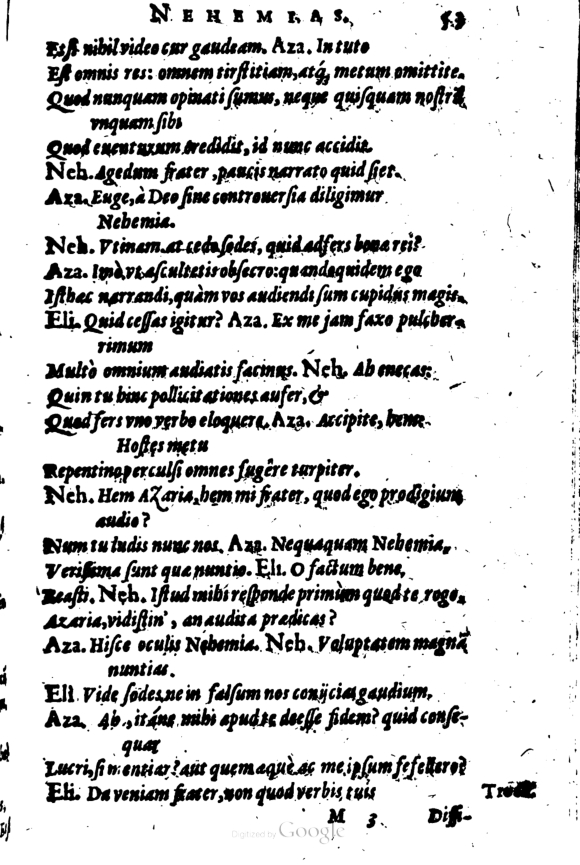 NEHEMIAS. 53
Est nihil video cur gaudeam. Aza. In tuto
Est omnis res: omnem tirstitiam, atq́, metum omittite.
Quod nunquam opinati sumus, neque quisquam nostrũ
vnquam sibi
Quod euenturum credidit, id nunc accidit.
Neh. Agedum frater, paucis narrato quid siet.
Aza. Euge, à Deo sine controuersia diligimur
Nehemia.
Neh. Vtinam. at cedo sodes, quid adfers bonæ rei?
Aza. Imò, vt ascultetis obsecro: quandoquidem ego
Isthæc narrandi, quàm vos audiendi sum cupidus magis.
Eli. Quid cessas igitur? Aza. Ex me jam faxo pulcher-
rimum
Multò omnium audiatis facinus. Neh. Ab enecas:
Quin tu hinc pollicitationes aufer, &
Quod fers vno verbo eloquere. Aza. Accipite, hem.
Hostes metu
Repentino perculsi omnes fugêre turpiter.
Neh. Hem Azaria, hem mi frater, quod ego prodigium
audio?
Num tu ludis nunc nos. Aza. Nequaquam Nehemia,
Verissima sunt quæ nuntio. Eli. O factum bene,
Beasti. Neh. Istud mihi responde primùm quod te rogo.
Azaria, vidistin', an audita prædicas?
Aza. Hisce oculis Nehemia. Neh. Voluptatem magnã
nuntias.
Eli. Vide sodes, ne in falsum nos conijcias gaudium,
Aza. Ab, itáne mihi apud te deesse fidem? quid conse-
quar
Lucri, si mentiar? aut quem æquè ac me ipsum fefellero?
Eli. Da veniam frater, non quod verbis tuis
M 3 Diffi-
Digitized by Google